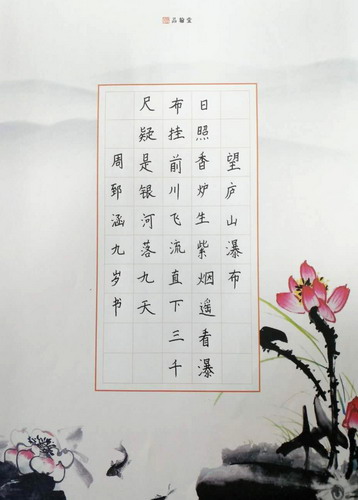 品翰堂
望庐山瀑布
日照香炉生紫烟遥看瀑
布挂前川飞流直下三千
尺疑是银河落九天
周郅涵九岁书